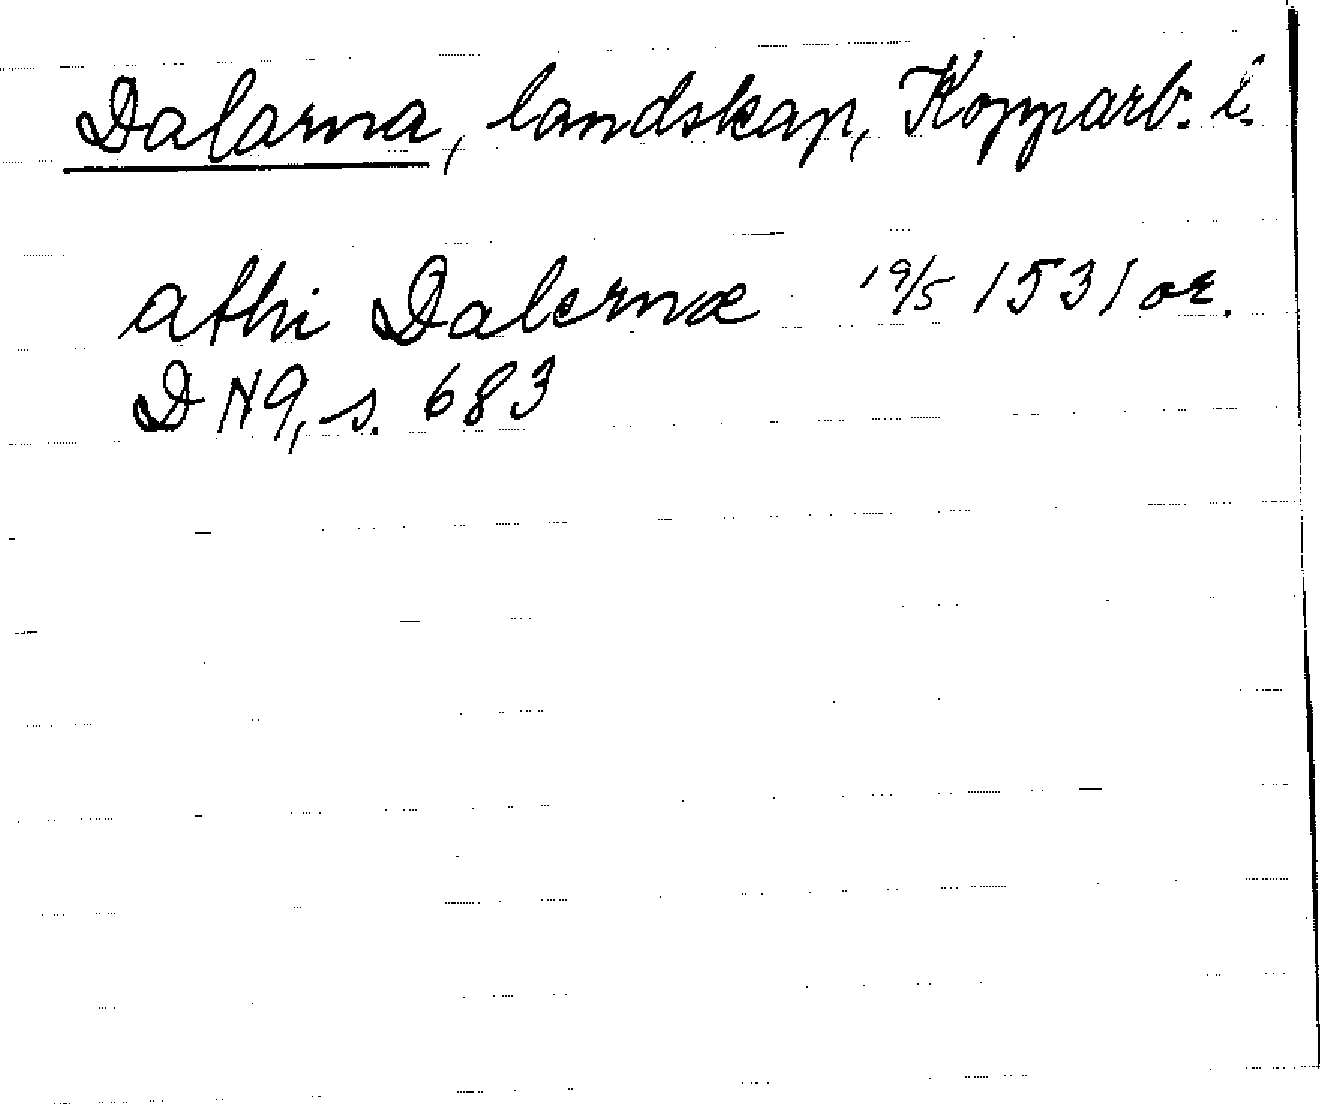 Dalarna, landskap, Kopparb. l.
athi Dalernæ 19/5 1531 or.
DN9, s. 683